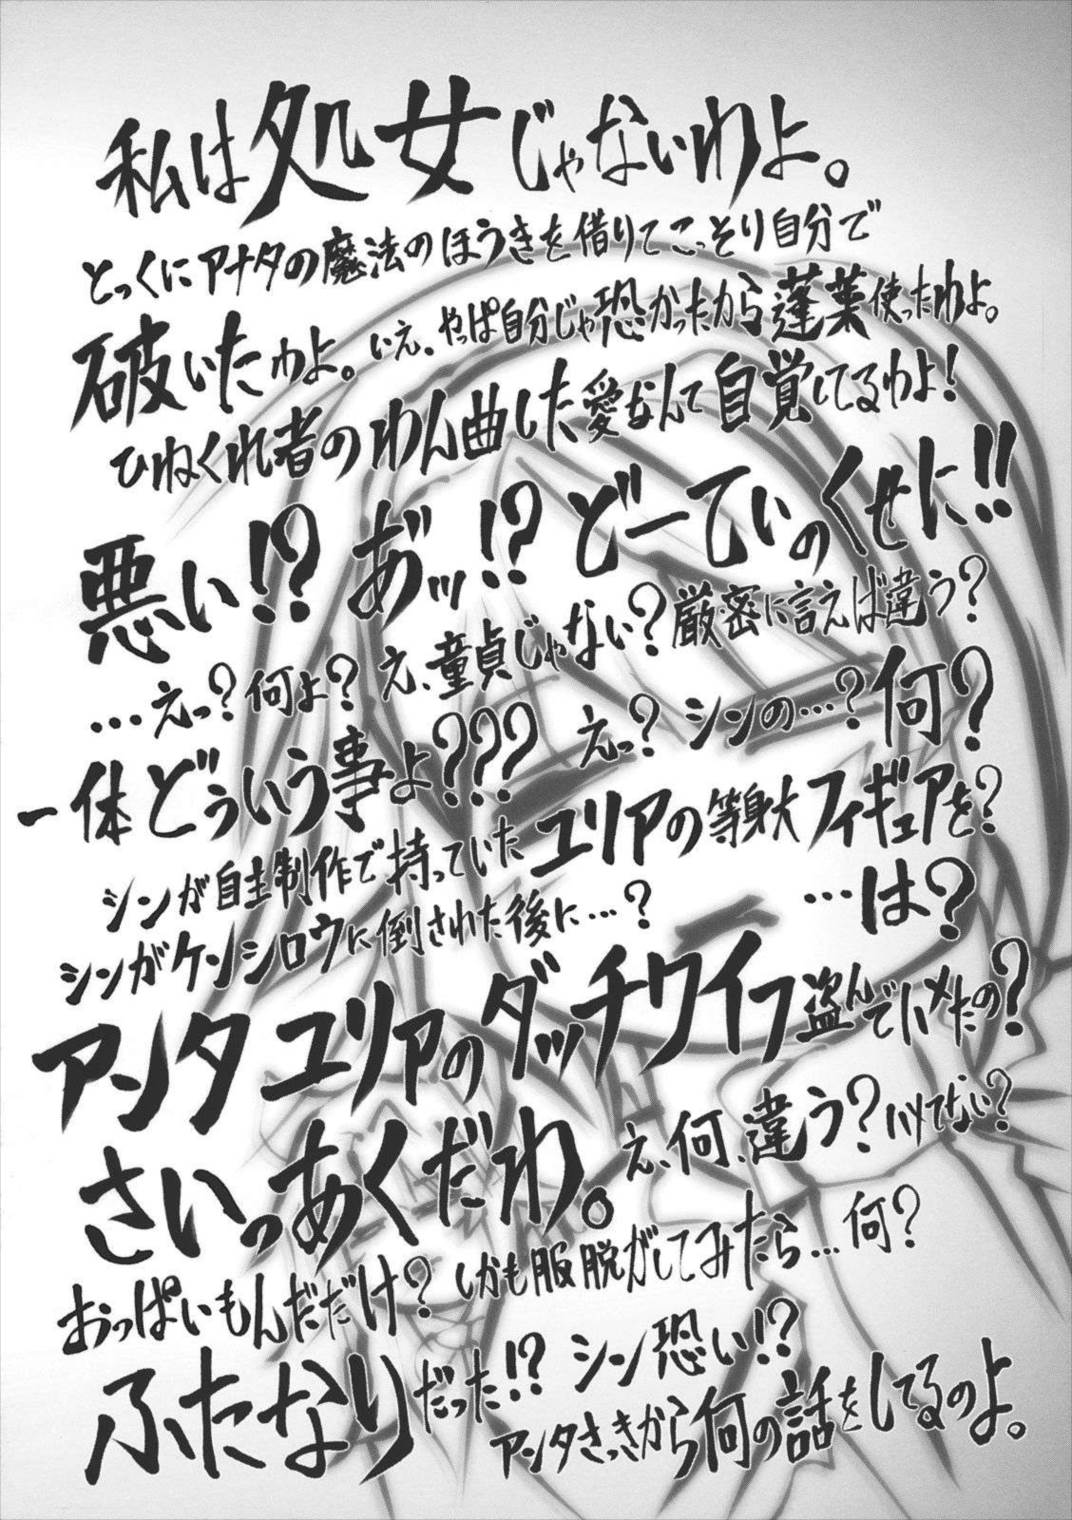 私は処女じゃないわよ。
とっくにアナタの魔法のほうきを借りてこっそり自分で
破いたわよ。いえ、やっぱ自分じゃ恐かったから蓬莱使ったわよ。
ひねくれ者のわん曲した愛なんて自覚してるわよ!
悪い!? あ゛ッ!? どーてぃのくせに!!
…えっ?何よ? え、童貞じゃない?厳密に言えば違う?
一体どぅいう事よ??? えっ? シンの…?何?
シンが自主制作で持っていたユリアの等身大フィギュアを?
シンがケンシロウに倒された後に…? …は?
アンタユリアのダッチワイフ盗んでハメたの?
さいっあくだわ。え、何、違う?ハメてない?
おっぱいもんだだけ?しかも服脱がしてみたら…何?
ふたなりだった!? シン恐い!?
アンタさっきから何の話をしてるのよ。